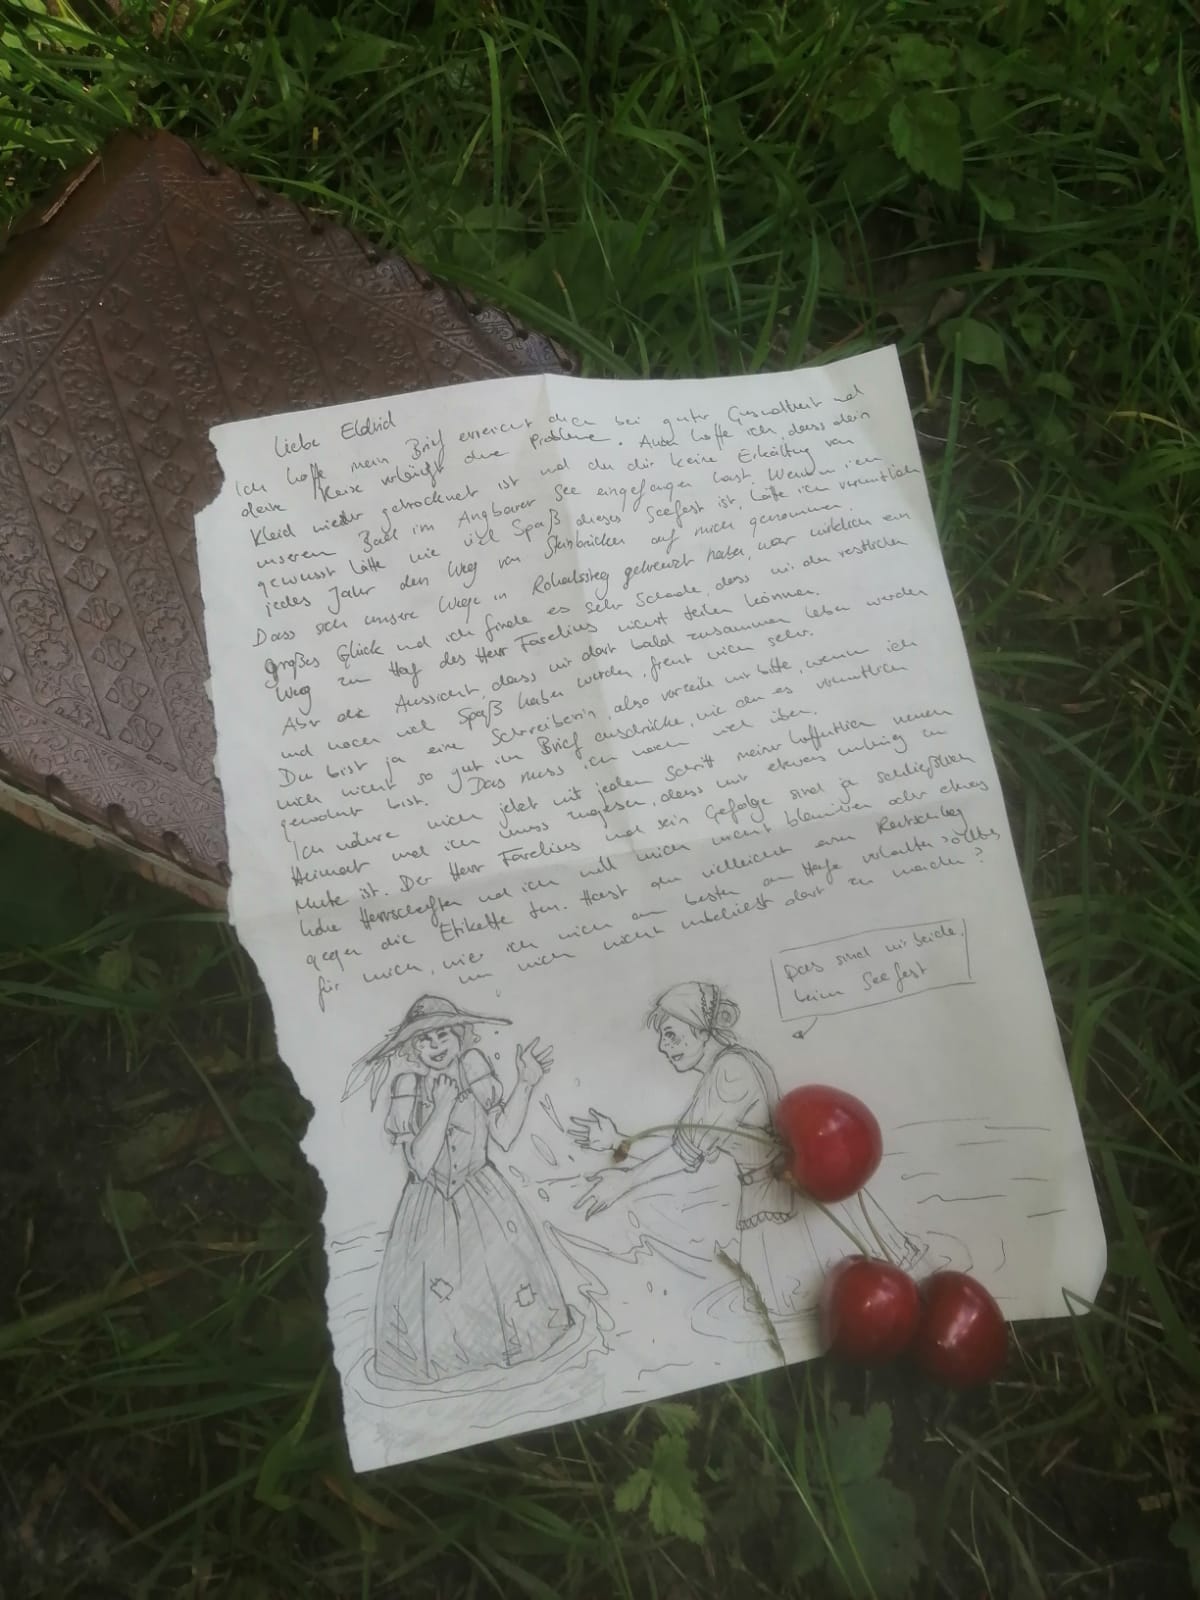 Liebe Eldrid
Ich hoffe mein Brief erreicht dich bei guter Gesundheit und
deine Reise verläuft ohne Probleme. Auch hoffe ich, dass dein
Kleid wieder getrocknet ist und du dir keine Erkältung von
unserem Bad im Angbarer See eingefangen hast. Wenn ich
gewusst hätte wie viel Spaß dieses Seefest ist, hätte ich vermutlich
jedes Jahr den Weg von Steinbrücken auf mich genommen.
Dass sich unsere Wege in Rohalssteg gekreuzt haben, war wirklich ein
großes Glück und ich finde es sehr Schade, dass wir den restlichen
Weg zum Hof des Herr Farelius nicht teilen können.
Aber die Aussicht, dass wir dort bald zusammen leben werden
und noch viel Spaß haben werden, freut mich sehr.
Du bist ja eine Schreiberin, also verzeih mir bitte, wenn ich
mich nicht so gut im Brief ausdrücke, wie du es vermutlich
gewohnt bist. Das muss ich noch viel üben.
Ich nähre mich jetzt mit jedem Schritt meiner hoffentlich neuen
Heimat und ich muss zugeben, dass mir etwas mulmig zu
Mute ist. Der Herr Farelius und sein Gefolge sind ja schließlich
hohe Herrschaften und ich will mich nicht blamieren oder etwas
gegen die Etikette tun. Hast du vielleicht einen Ratschlag
für mich, wie ich mich am besten am Hofe verhalten sollte,
um mich nicht unbeliebt dort zu machen?
Das sind wir beide,
beim Seefest